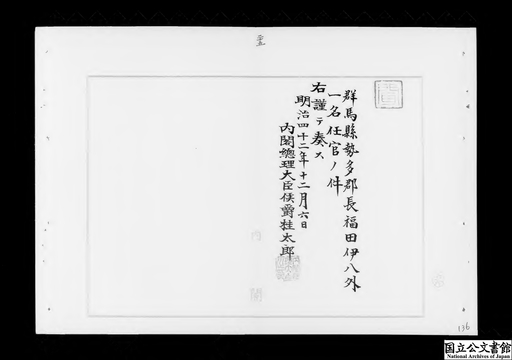 群馬縣勢多郡長福田伊八外
一名任官ノ件
右謹テ奏ス
明治四十二年十二月六日
内閣總理大臣侯爵桂太郎
136
国立公文書館
National Archives of Japan